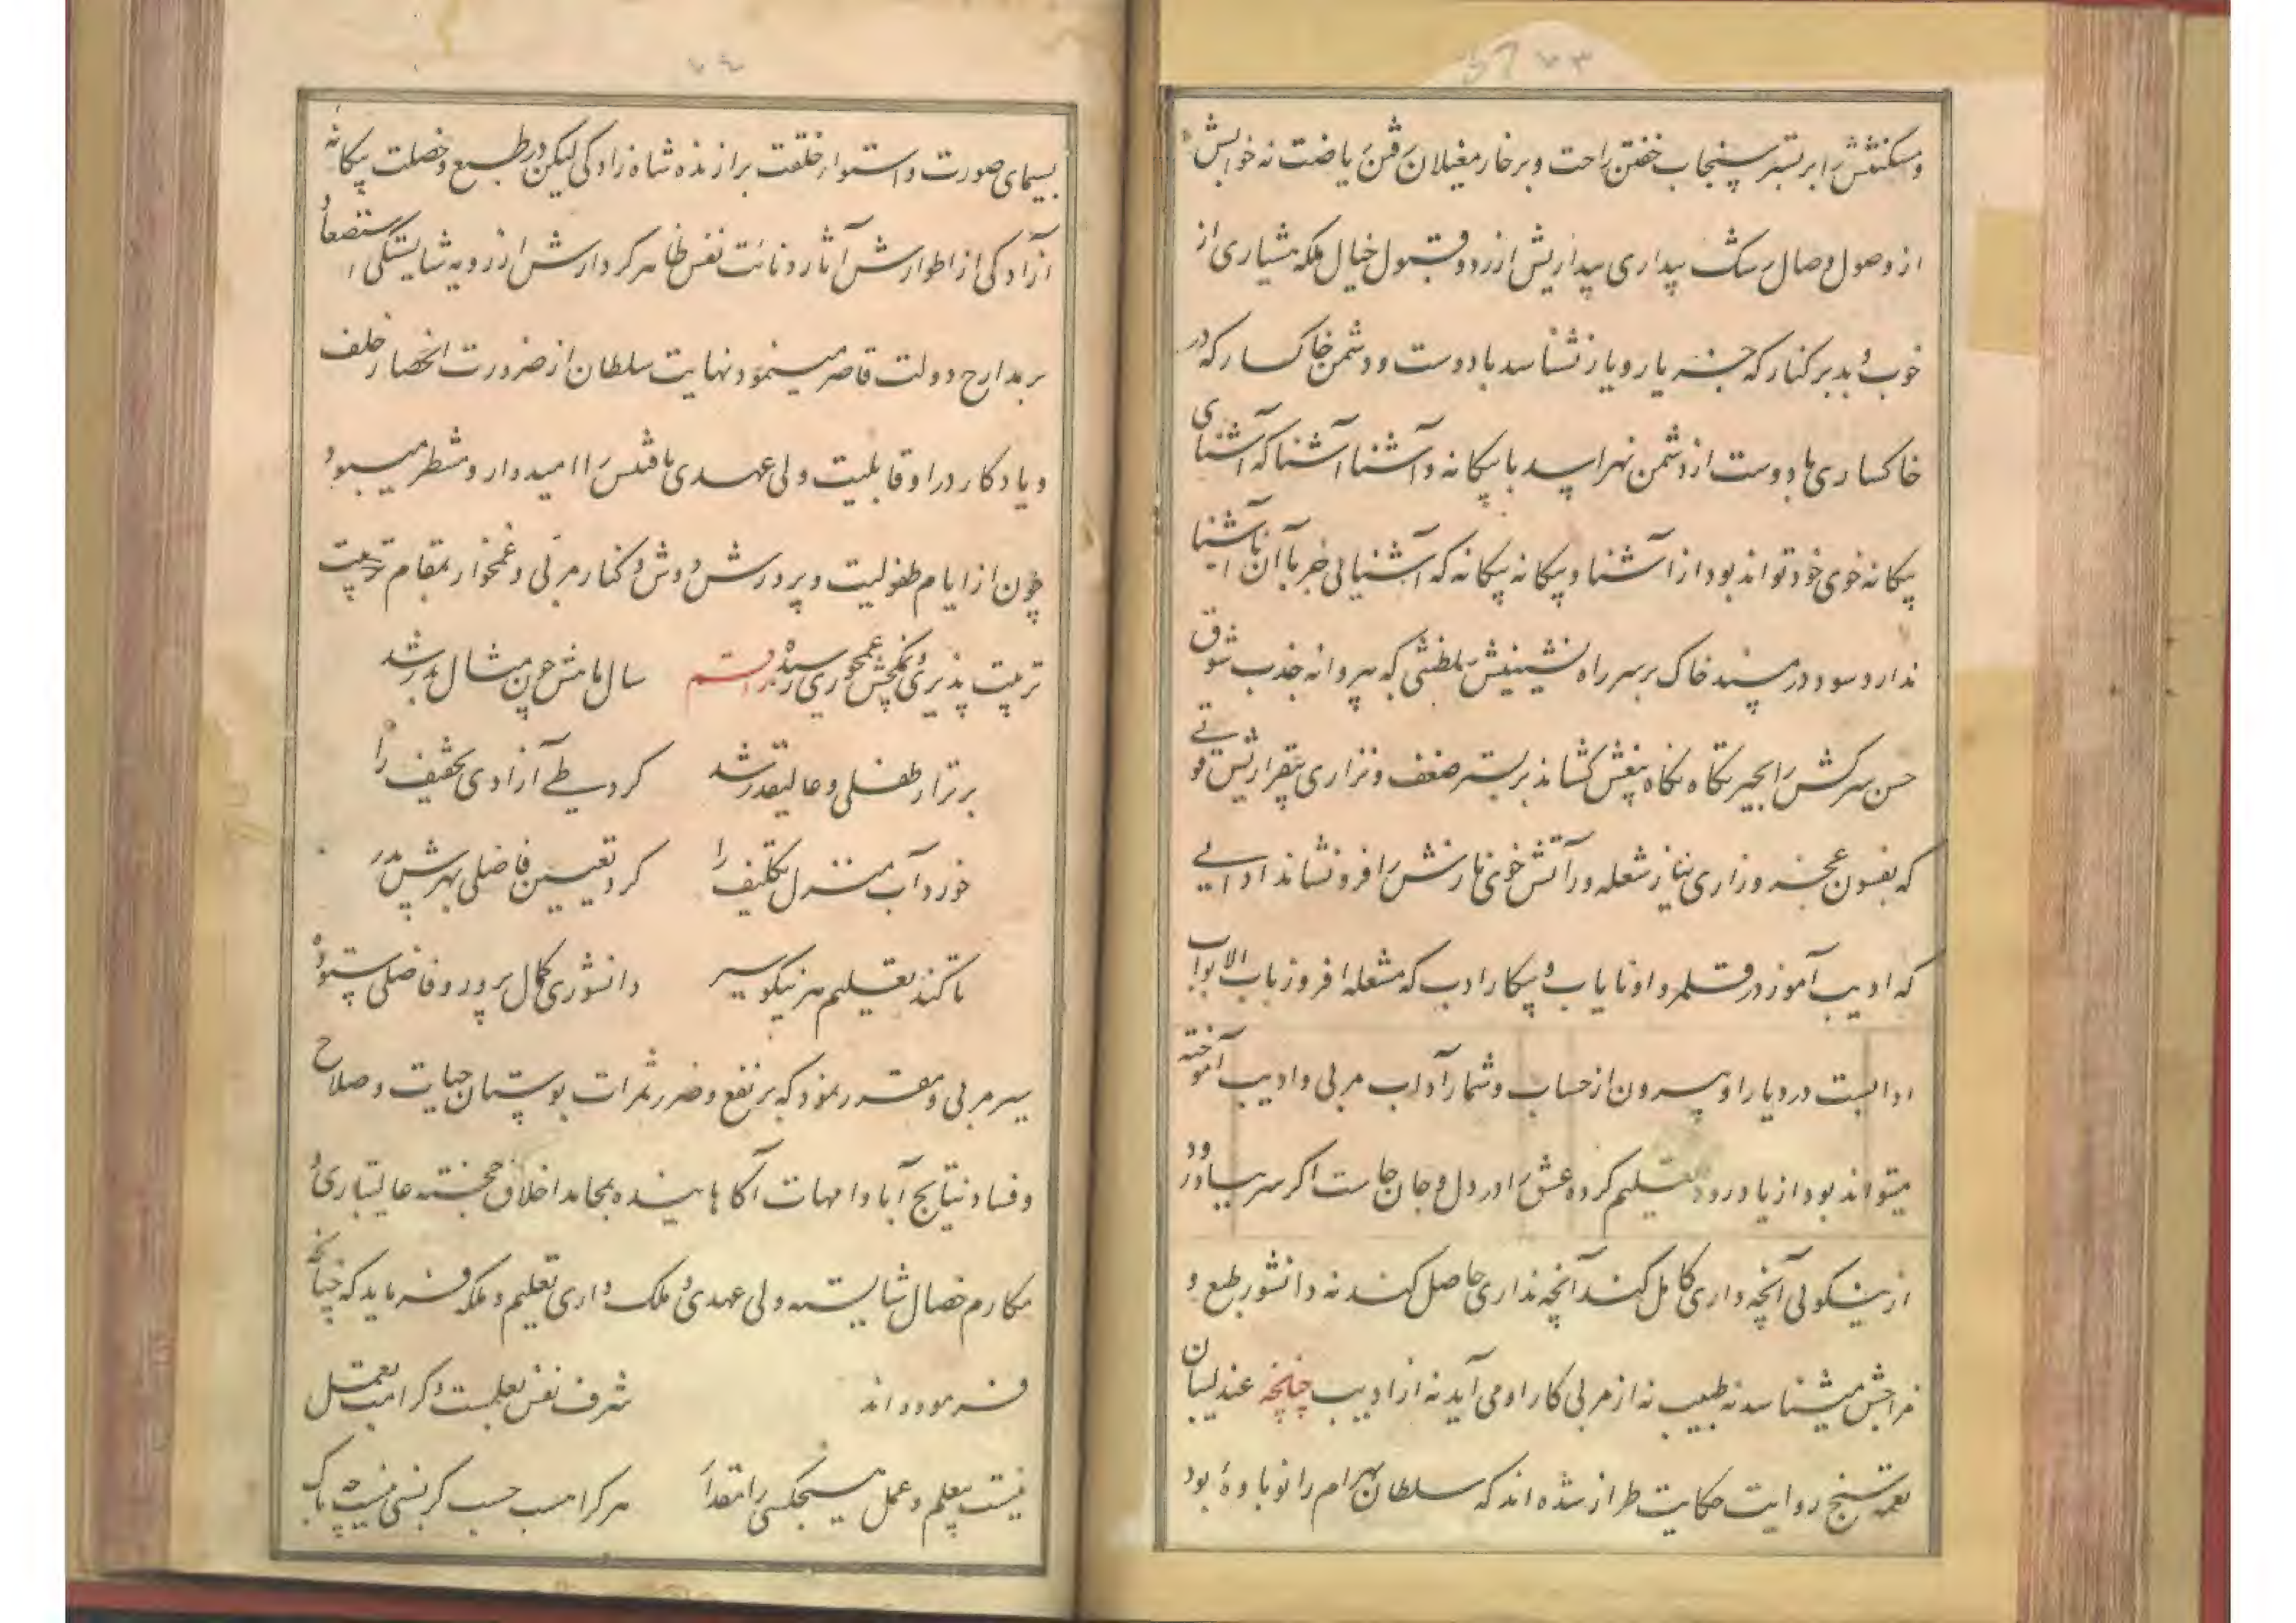 و مسکنتش را بر بستر سنجاب خفتن راحت و بر خار مغیلان رفتن ریاضت نه خوابش
از وصول وصال رشک بیداری بیداریش از رد و قبول خیال ملکه هشیاری از
خوب و بد بر کنار که جز یار و یار نشناسد با دوست و دشمن خاکسار که در
خاکساری ها دوست از دشمن نهراسد با بیکانه و آشنا آشنا که آشنای
بیکانه خوی خود تواند بود از آشنا و بیکانه بیکانه که آشنیائی جز با آن ناآشنا
ندارد و سود در مسند خاک بر سر راه نشینیش سلطنتی که بپروانه جذب شوق
حسن سرکش را بجیر تکاه نکاه بیغش کشاند بر بستر ضعف و نزاری بیقراریش قوتی
که بفسون عجز و زاری نیاز شعله ور آتش خوی نازش را فرو نشاند ادائی
که ادیب آموز در قلمرو او نایاب و بیکار ادب که مشعله افروز باب الابواب
ادا است در دیار او بیرون از حساب و شمار آداب مربی و ادیب آموخته
میتواند بود از یاد رود تعلیم کرده عشق را در دل و جان جاست اکر سر بیاد رود
از نیکوئی آنچه داری کامل کند آنچه نداری حاصل کند نه دانشور طبع و
مزاجش میشناسد نه طبیب نه از مربی کار او می آید نه از ادیب چنانچه عندلیبان
نغمه سنج روایت حکایت طراز شده اند که سلطان بهرام را نوباوهٔ بود
بسیمای صورت و استوار خلقت برازنده شاه زادکی لیکن در طبع و خصلت بیکانهٔ
آزادکی از اطوارش آثار دنائت نفس ظاهر کردارش از رویه شایستکی استصعاد
بر مدارج دولت قاصر مینمود نهایت سلطان از ضرورت انحصار خلف
و یادکار در او قابلیت ولی عهدی نافتنس را امیدوار و منتظر میبود
چون از ایام طفولیت و پرورش دوش و کنار مربی و غمخوار بمقام تربیت
تربیت پذیری و بمحبش غمخوری رسیده لراقم سال ماهش چون مثال بدر شد
برتر از طفلی و عالیقدر شد کرد طی آزادی تخفیف را
خورد آب منزل تکلیف را کرد تعیین فاضلی بهرش پدر
تا کند تعلیم هر نیکو سیر دانشوری کمال پرور و فاضلی ستوده
سیر مربی و مقرر نمود که بر نفع و ضرر ثمرات بوستان حیات و صلاح
و فساد نتایج آبا و امهات آکاهاننده بمحامد اخلاق خجسته عالیتباری و
مکارم خصال شایسته ولی عهدی و ملک داری تعلیم و ملکه فرماید که چنانچه
فرموده اند شرف نفس بعلمست و کرامت بعمل
نیست بیعلم و عمل هیچکسی را مقدار هر کرا هست حسب کر نسبی نیست چه باک